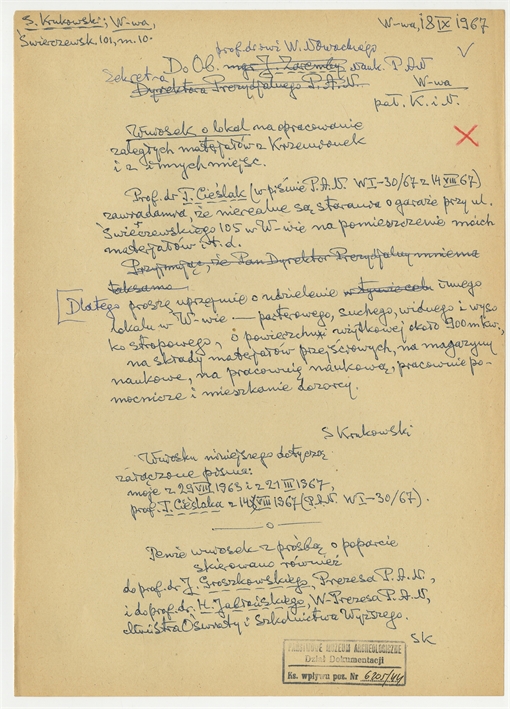 S. Krukowski; W-wa,
Świerczewsk. 101, m. 10.
W-wa, 18 IX 1967
prof. dr inż. W. Nowackiego
Sekretra Do Ob. mgr J. Zaremby nauk. P.A.N
Dyrektora Prezydjalnego P.A.N.
W-wa
pał. K. i N.
Wniosek o lokal na opracowanie
zaległych materjałów z Krzemionek
i z innych miejsc.
Prof. dr T. Cieślak (w piśmie P.A.N. WI-30/67 z 14 VIII 67)
zawiadamia, że nierealne są starania o garaże przy ul.
Świerczewskiego 105 w W-wie na pomieszczenie moich
materjałów it.d.
Przyjmując, że Pan Dyrektor Prezydjalny mniema
tak samo
Dlatego proszę uprzejmie o udzielenie innego
lokalu w W-wie — parterowego, suchego, widnego i wyso
ko stropowego, o powierzchni użytkowej około 900 m kw.,
na składy materjałów przejściowych, na magazyny
naukowe, na pracownię naukową, pracownie po-
mocnicze i mieszkanie dozorcy.
S Krukowski
Wniosku niniejszego dotyczą
załączone pisma:
moje z 29 VIII 1963 i z 21 III 1967,
prof. T. Cieślaka z 14 VIII 1967 (P.A.N. WI-30/67).
Tenże wniosek z prośbą o poparcie
skierowano również
do prof. dr J. Groszkowskiego, Prezesa P.A.N.,
i do prof. dr. H. Jabłońskiego, W-Prezesa P.A.N.,
Ministra Oświaty i Szkolnictwa Wyższego.
SK
PAŃSTWOWE MUZEUM ARCHEOLOGICZNE
Dział Dokumentacji
Ks. wpływu poz. Nr 6205/44